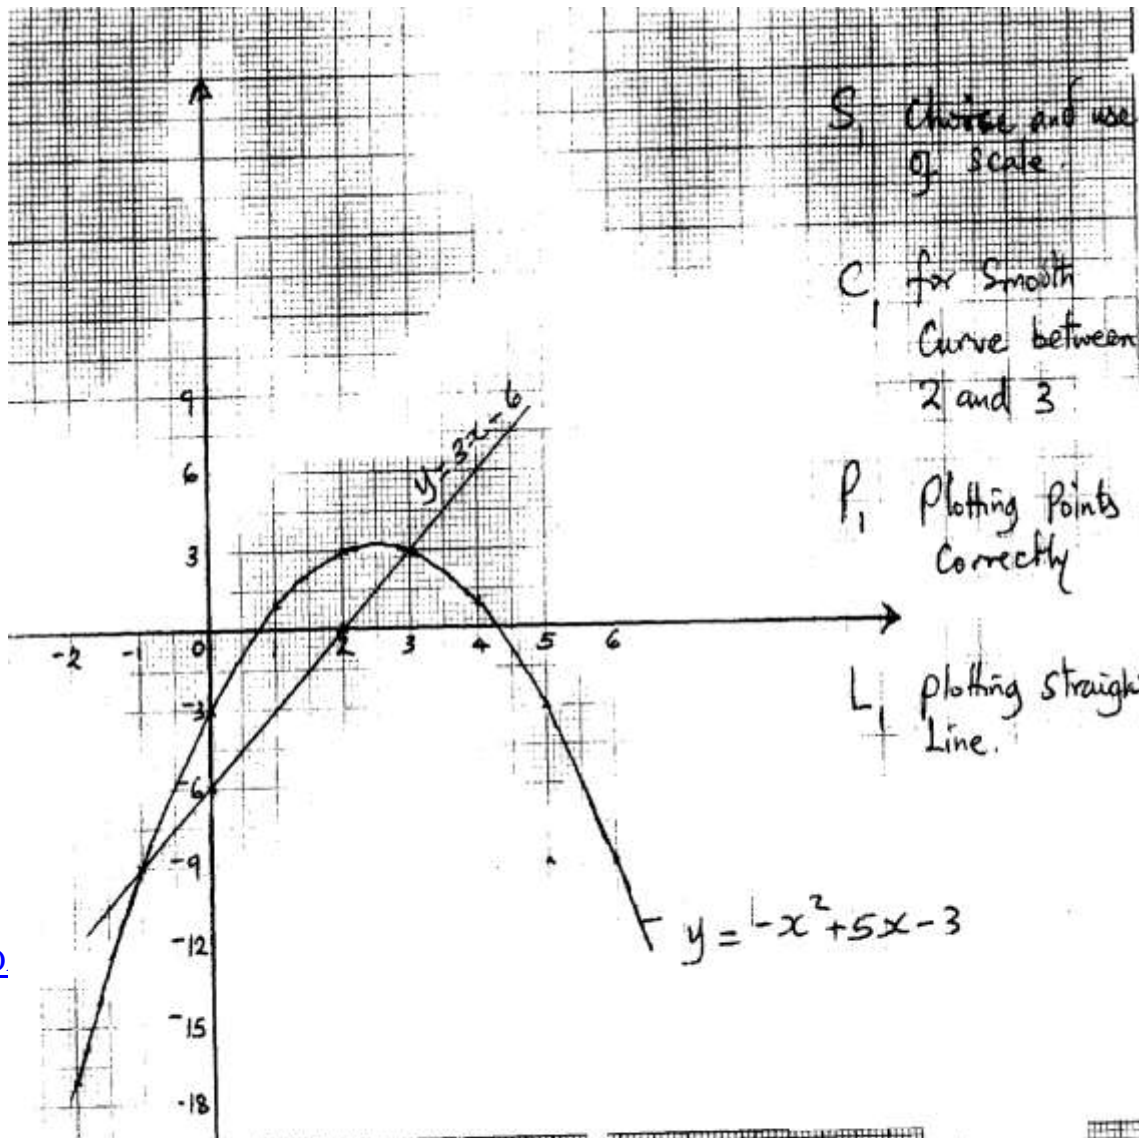 S₁ Choice and use
of scale.
C₁ for Smooth
Curve between
2 and 3
P₁ Plotting Points
Correctly
L₁ plotting straigh
Line.
9
6
3
-2 -1 0 1 2 3 4 5 6
-3
-6
-9
-12
-15
-18
y=3x-6
y = -x²+5x-3